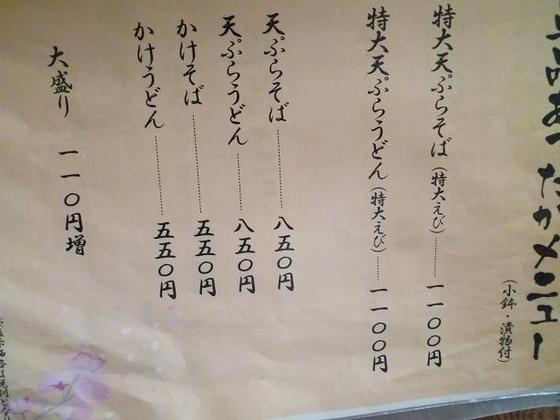 単品あったかメニュー
(小鉢・漬物付)
特大天ぷらそば(特大えび)……一一〇〇円
特大天ぷらうどん(特大えび)……一一〇〇円
天ぷらそば……八五〇円
天ぷらうどん……八五〇円
かけそば……五五〇円
かけうどん……五五〇円
大盛り 一一〇円増